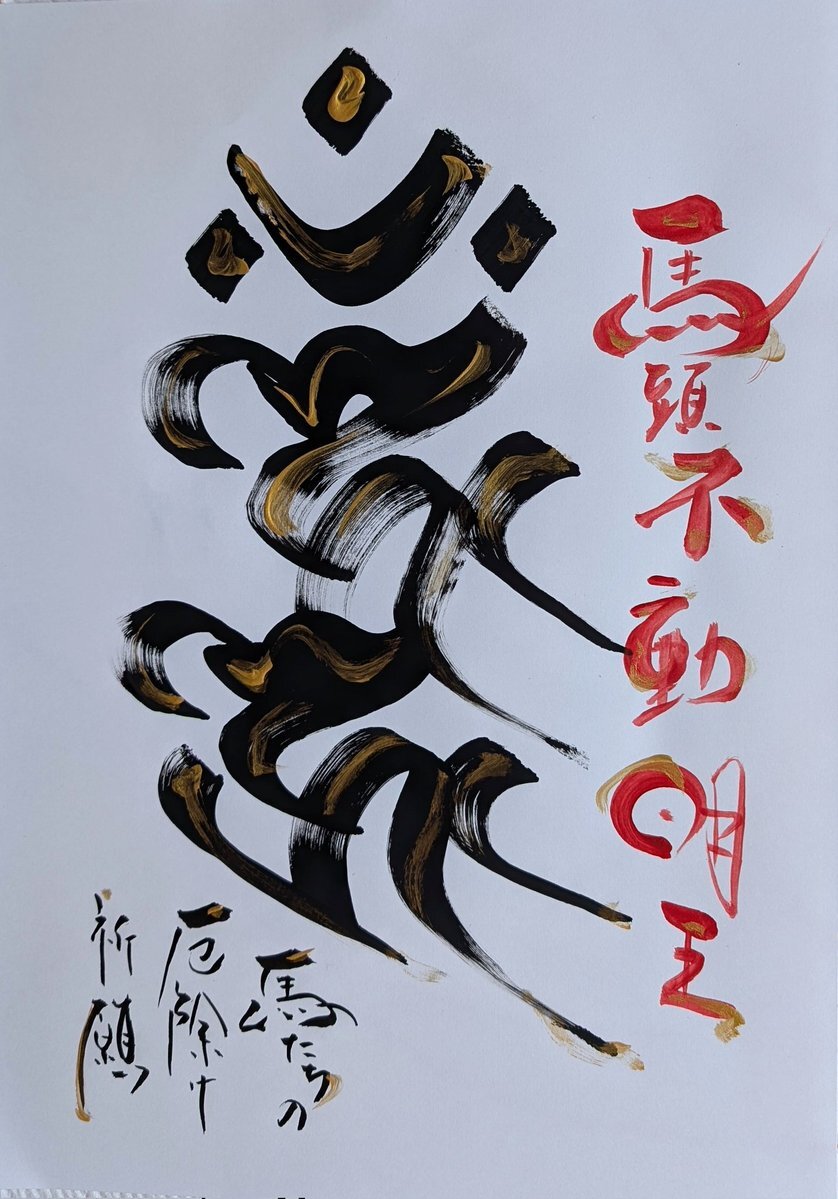 馬頭不動明王
馬たちの
厄除け
祈願